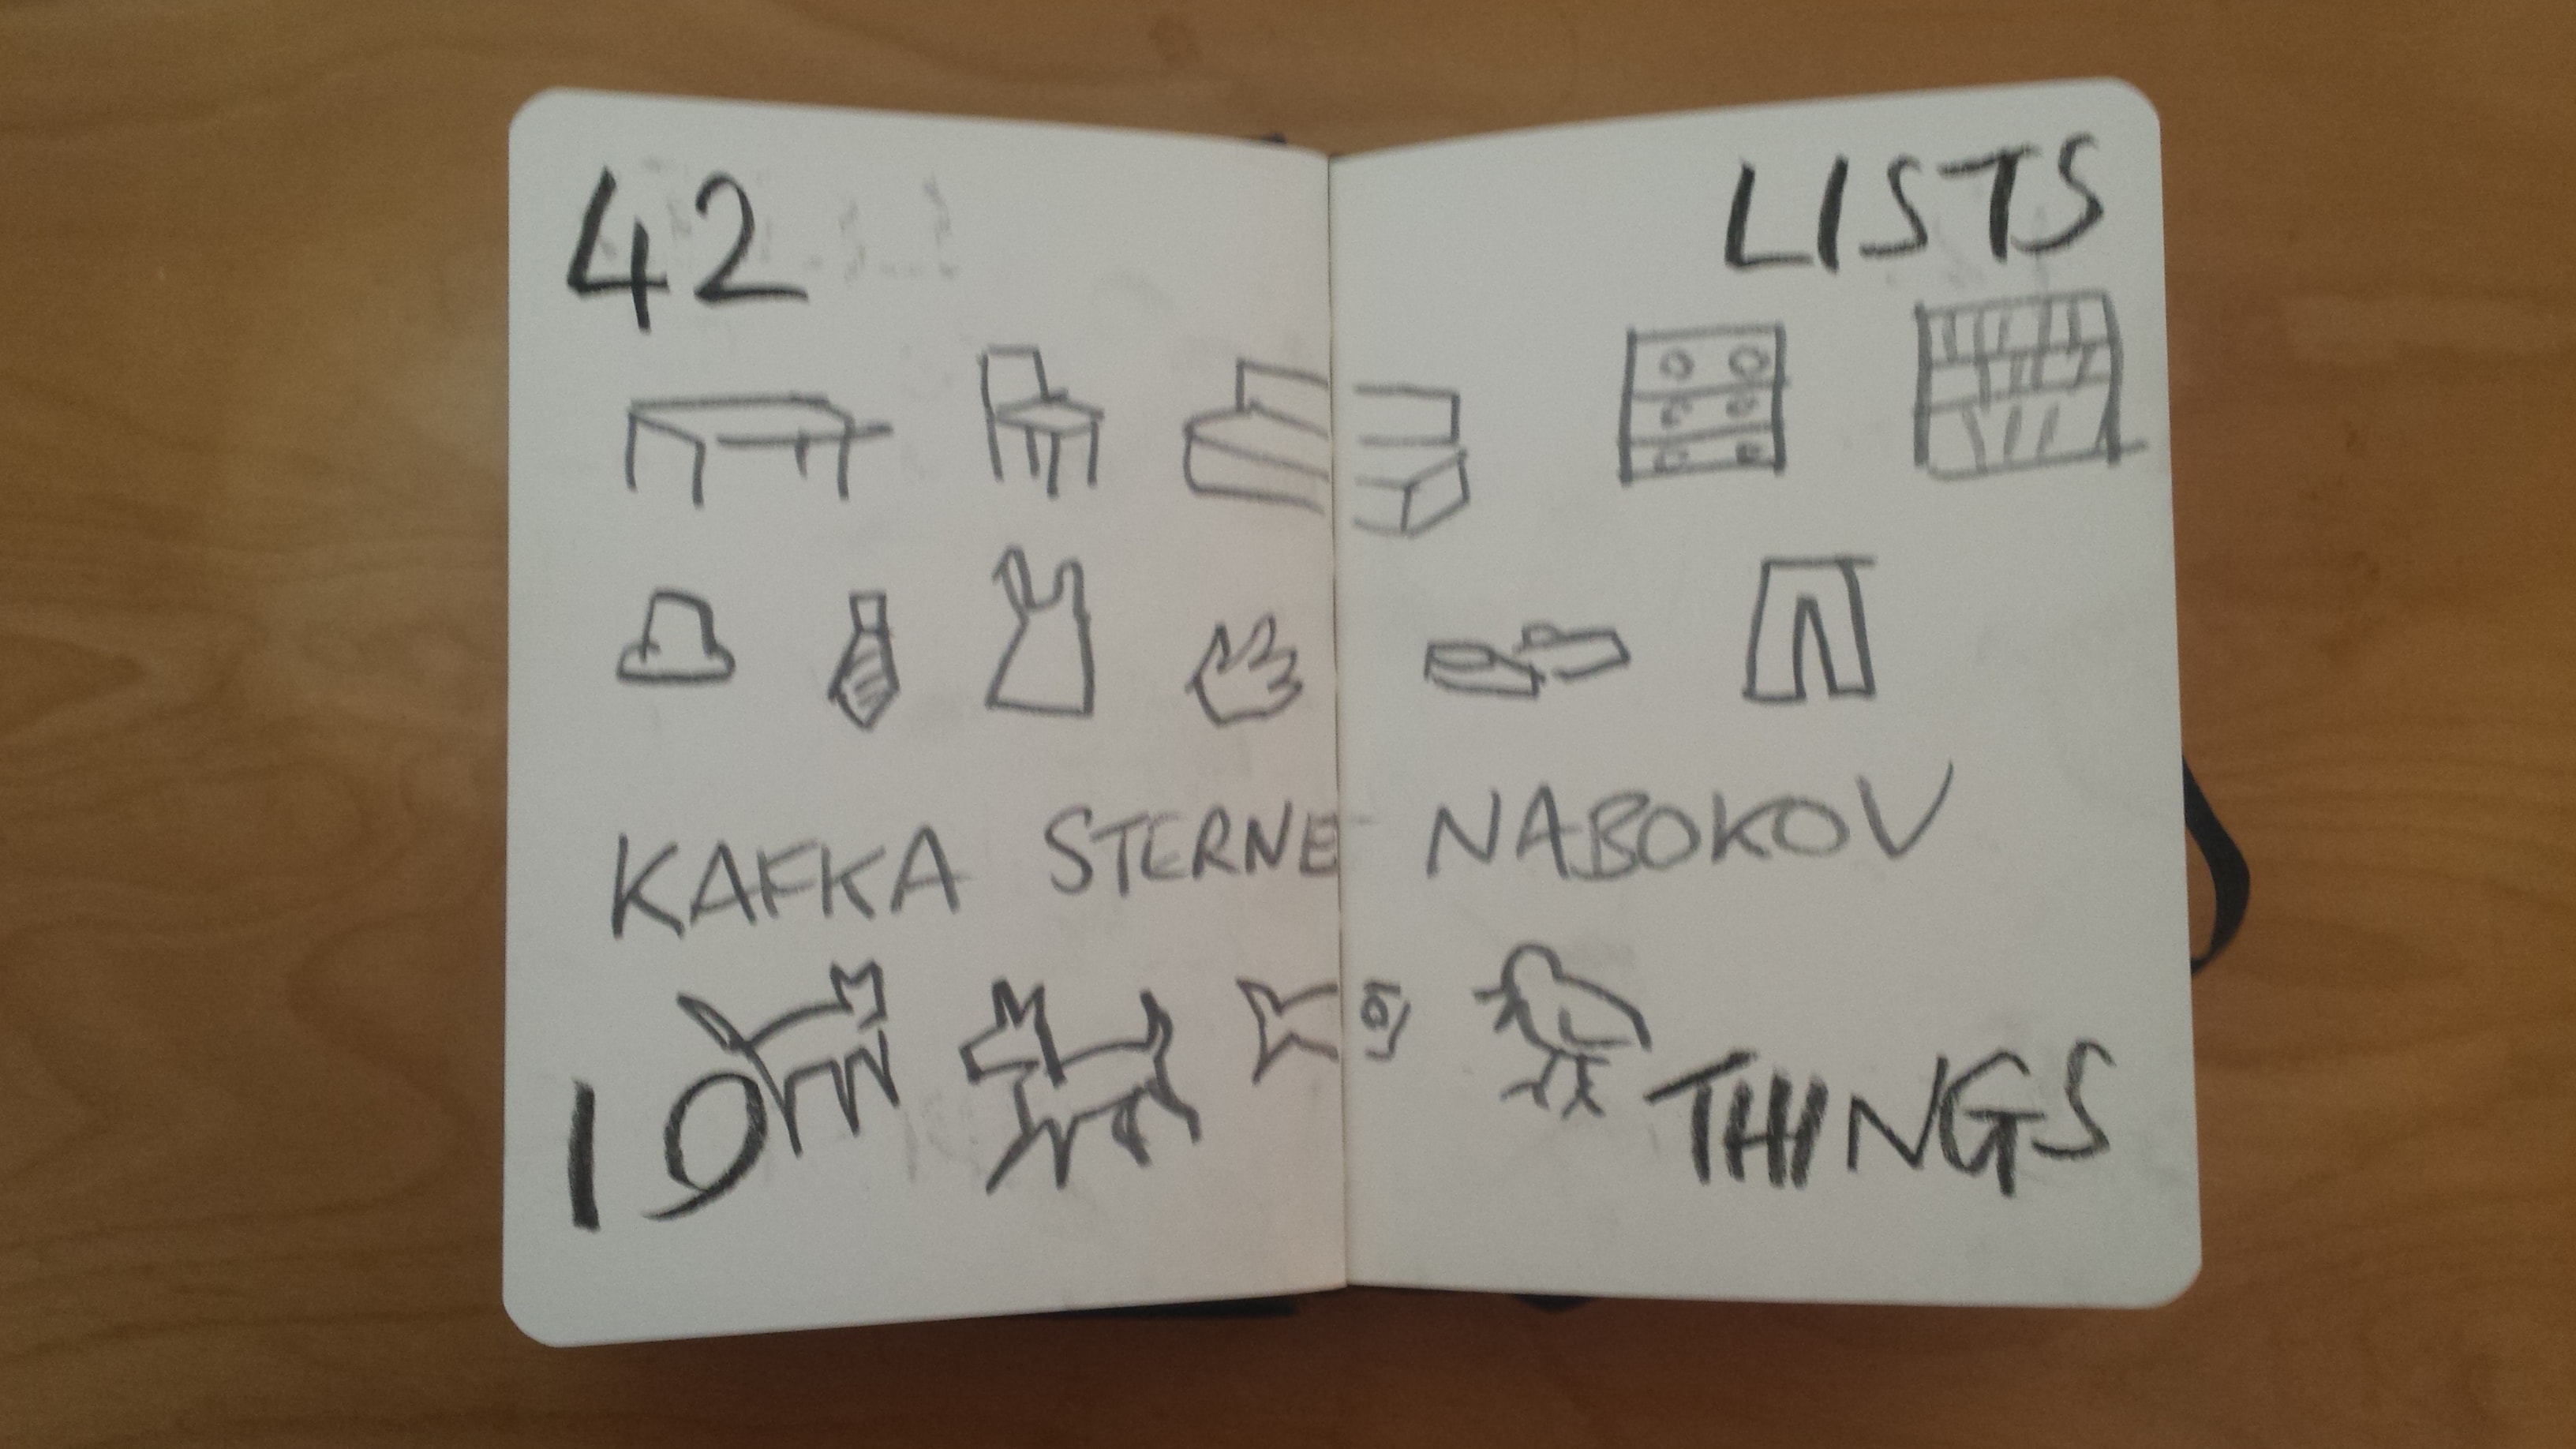 42 LISTS
KAFKA STERNE NABOKOV
10 THINGS